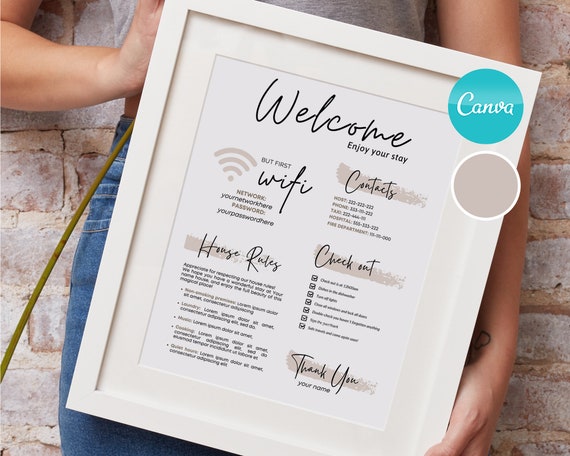 Welcome
Enjoy your stay
Canva
BUT FIRST
wifi
NETWORK:
yournetworkhere
PASSWORD:
yourpasswordhere
Contacts
HOST: 222-222-222
PHONE: 333-111-222
TAXI: 222-444-111
HOSPITAL: 555-333-222
FIRE DEPARTMENT: 111-111-000
House Rules
Appreciate for respecting our house rules!
We hope you have a wonderful stay at Your
name house, and enjoy the full beauty of this
magical place!
• Non-smoking premises: Lorem ipsum
dolor sit amet, consectetur adipiscing
• Laundry: Lorem ipsum dolor sit amet,
consectetur adipiscing elit, sed do.
• Music: Lorem ipsum dolor sit amet.
• Cooking: Lorem ipsum dolor sit amet,
consectetur adipiscing elit, sed do
eiusmod tempor incididunt ut labore et
• Quiet hours: Lorem ipsum dolor sit amet,
consectetur adipiscing elit.
Check out
Check out is at 12h00am
Dishes in the dishwasher
Turn off lights
Close all windows and lock all doors
Double check you haven't forgotten anything
Sign the guestbook
Safe travels and come again soon!
Thank You
your name